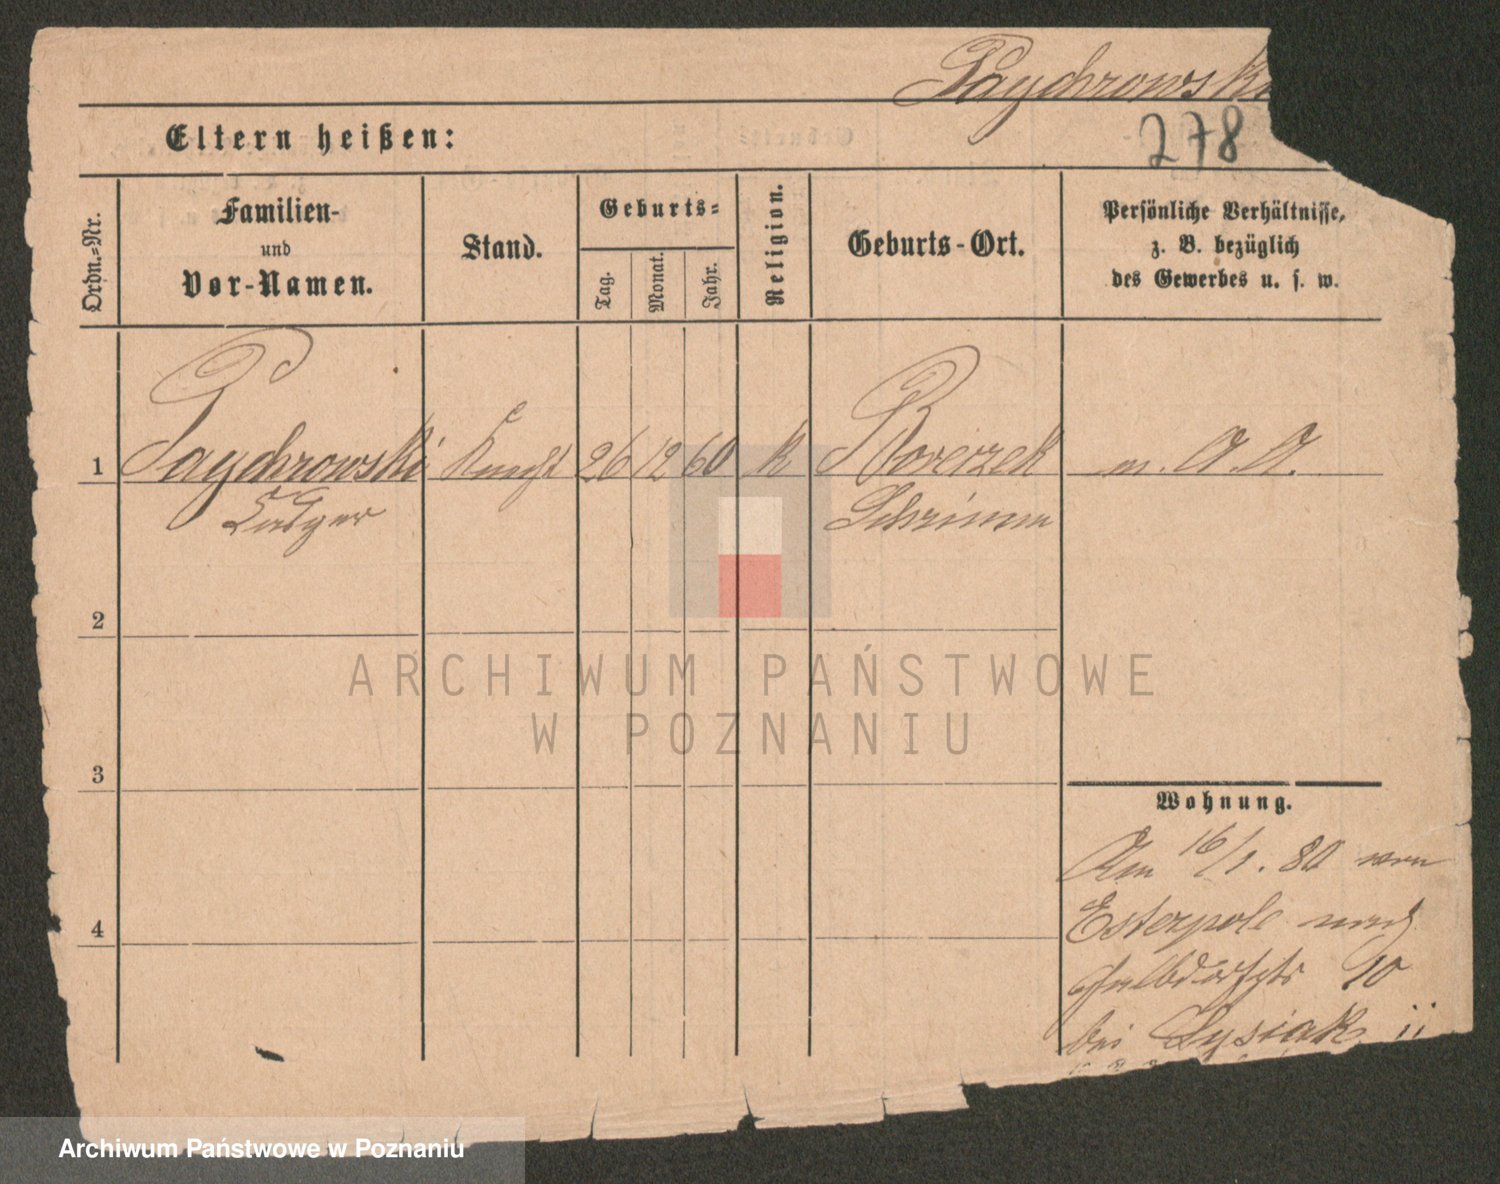 Paychrowski
278
Eltern heißen:
Ordn.-Nr.
Familien-
und
Vor-Namen.
Stand.
Geburts-
Tag.
Monat.
Jahr.
Religion.
Geburts-Ort.
Persönliche Verhältnisse,
z. B. bezüglich
des Gewerbes u. s. w.
1 Paychrowski Knecht 26 12 60 k Borezek m. A. A.
Casper Schrimm
2
3
4
Wohnung.
Am 16/1. 80 von
Esterpole nach
Halbdorfstr 10
bei Lysiak
ARCHIWUM PAŃSTWOWE
W POZNANIU
Archiwum Państwowe w Poznaniu